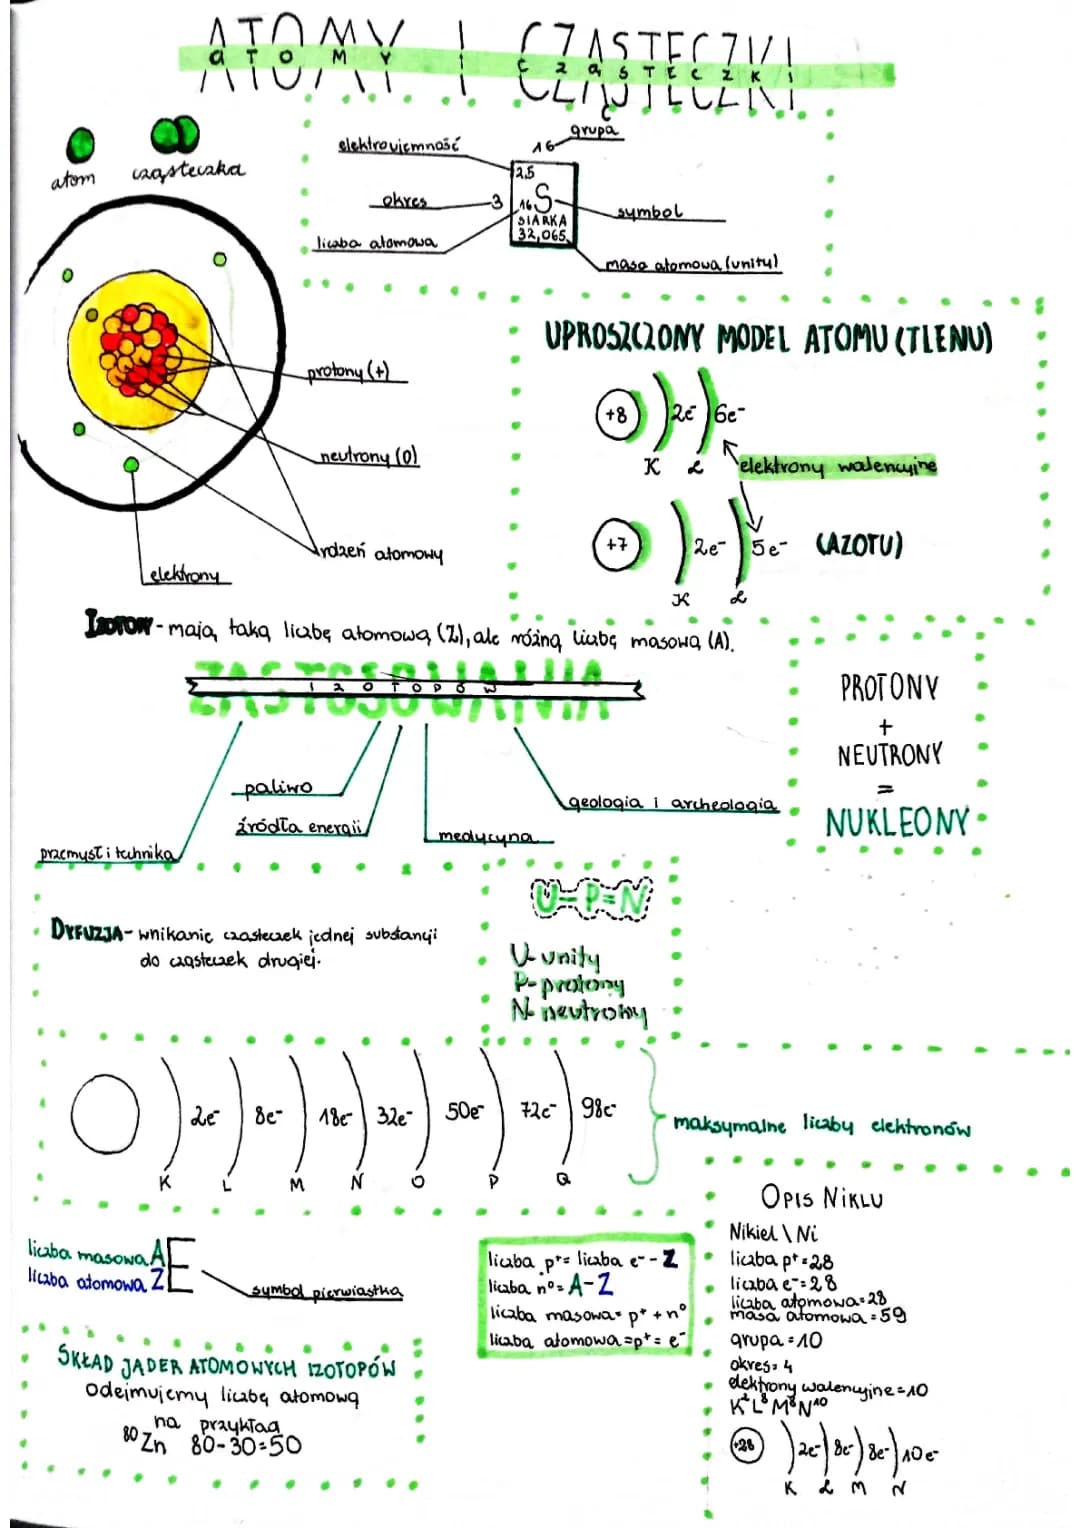 ATOMY I CZĄSTECZKI
aTOMY I CząSTECZKI
atom
cząsteczka
elektroujemność
16
grupa
2,5
okres
3
16
S
symbol
SIARKA
liczba atomowa
32,065
masa atomowa (unity)
UPROSZCZONY MODEL ATOMU (TLENU)
+8
2e-
6e-
K
L
elektrony walencyjne
+7
2e-
5e-
(AZOTU)
K
L
protony (+)
neutrony (0)
rdzeń atomowy
elektrony
IZOTOPY - mają taką liczbę atomową (Z), ale różną liczbę masową (A).
ZASTOSOWANIA
IZOTOPÓW
paliwo
źródła energii
przemysł i technika
medycyna
geologia i archeologia
PROTONY
+
NEUTRONY
=
NUKLEONY
DYFUZJA - wnikanie cząsteczek jednej substancji
do cząsteczek drugiej.
U-P=N
U- unity
P- protony
N- neutrony
2e-
8e-
18e-
32e-
50e-
72e-
98e-
K
L
M
N
O
P
Q
maksymalne liczby elektronów
liczba masowa A
liczba atomowa Z
E
symbol pierwiastka
liczba p+= liczba e- - Z
liczba n°= A-Z
liczba masowa= p+ + n°
liczba atomowa =p+= e-
SKŁAD JĄDER ATOMOWYCH IZOTOPÓW
Odejmujemy liczbę atomową
na przykład
80 Zn 80-30=50
OPIS NIKLU
Nikiel \ Ni
liczba p+=28
liczba e-=28
liczba atomowa=28
masa atomowa =59
grupa =10
okres= 4
elektrony walencyjne=10
K2L8M8N10
+28
2e-
8e-
8e-
10e-
K
L
M
N